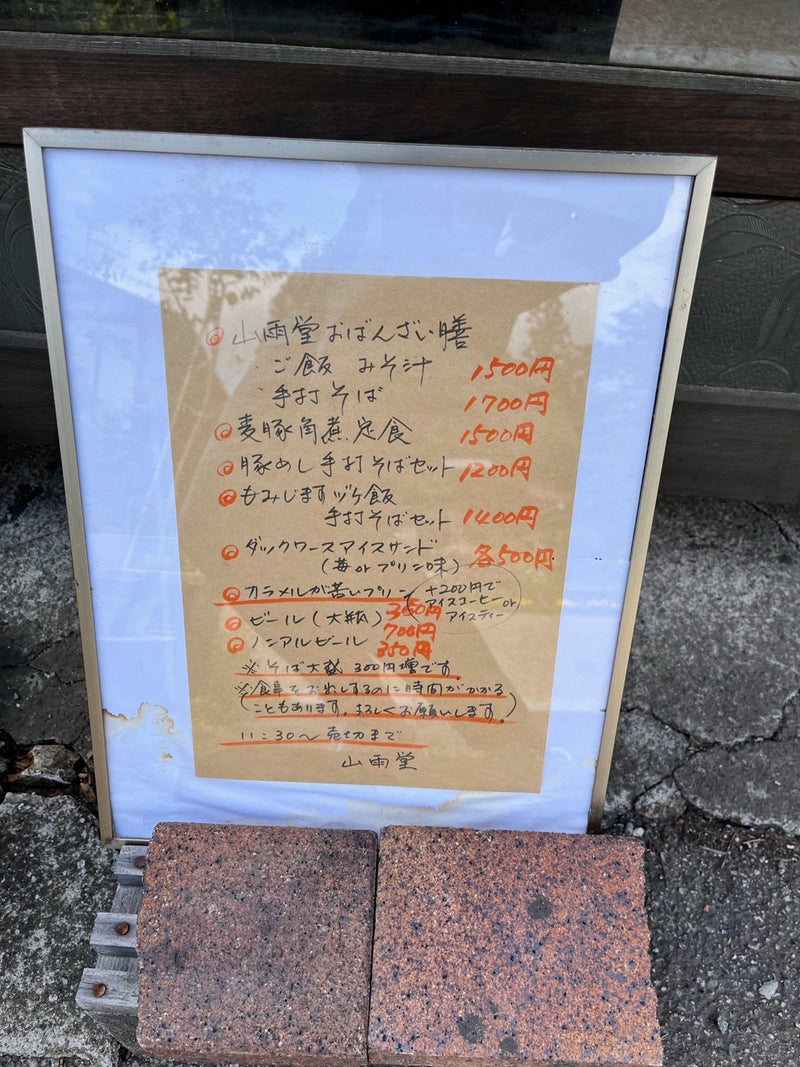 ◎山雨堂おばんざい膳
・ご飯 みそ汁 1500円
・手打そば 1700円
◎麦豚角煮定食 1500円
◎豚めし手打そばセット 1200円
◎もみじますヅケ飯
手打そばセット 1400円
◎ダックワースアイスサンド 各500円
(苺orプリン味)
◎カラメルが苦いプリン 350円
+200円で
アイスコーヒーor
アイスティー
◎ビール(大瓶) 700円
◎ノンアルビール 350円
※そば大盛 300円増です。
※食事をお出しするのに時間がかかる
(こともあります。よろしくお願いします。)
11:30〜売切まで
山雨堂